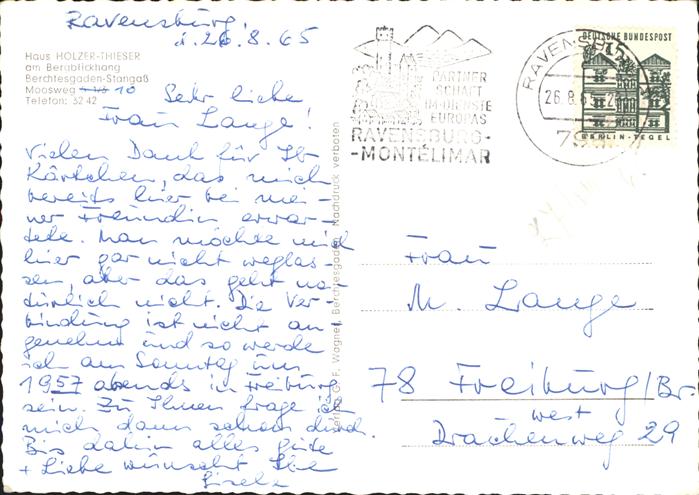 Ravensburg,
d. 26.8.65
Haus HOLZER-THIESER
am Berablickhang
Berchtesgaden-Stangaß
Moosweg 10
Telefon: 32 42
Sehr liebe
Frau Lange!
Vielen Dank für Ihr
Kärtchen, das mich
bereits hier bei mei-
ner Freundin erwar-
tete. Man möchte mich
hier gar nicht weglas-
sen, aber das geht na-
türlich nicht. Die Ver-
bindung ist nicht an
genehm und so werde
ich am Sonntag um
19 57 abends in Freiburg
sein. Zu Ihnen frage ich
mich dann schon durch.
Bis dahin alles Gute
+ Liebe wünscht Ihre
Gisela
Verlag G. F. Wagner, Berchtesgaden. Nachdruck verboten
PARTNER
SCHAFT
IM DIENSTE
EUROPAS
RAVENSBURG-
-MONTÉLIMAR
RAVENSBURG
26.8.65
DEUTSCHE BUNDESPOST
15
BERLIN-TEGEL
Frau
M. Lange
78 Freiburg/Br.
west
Drachenweg 29